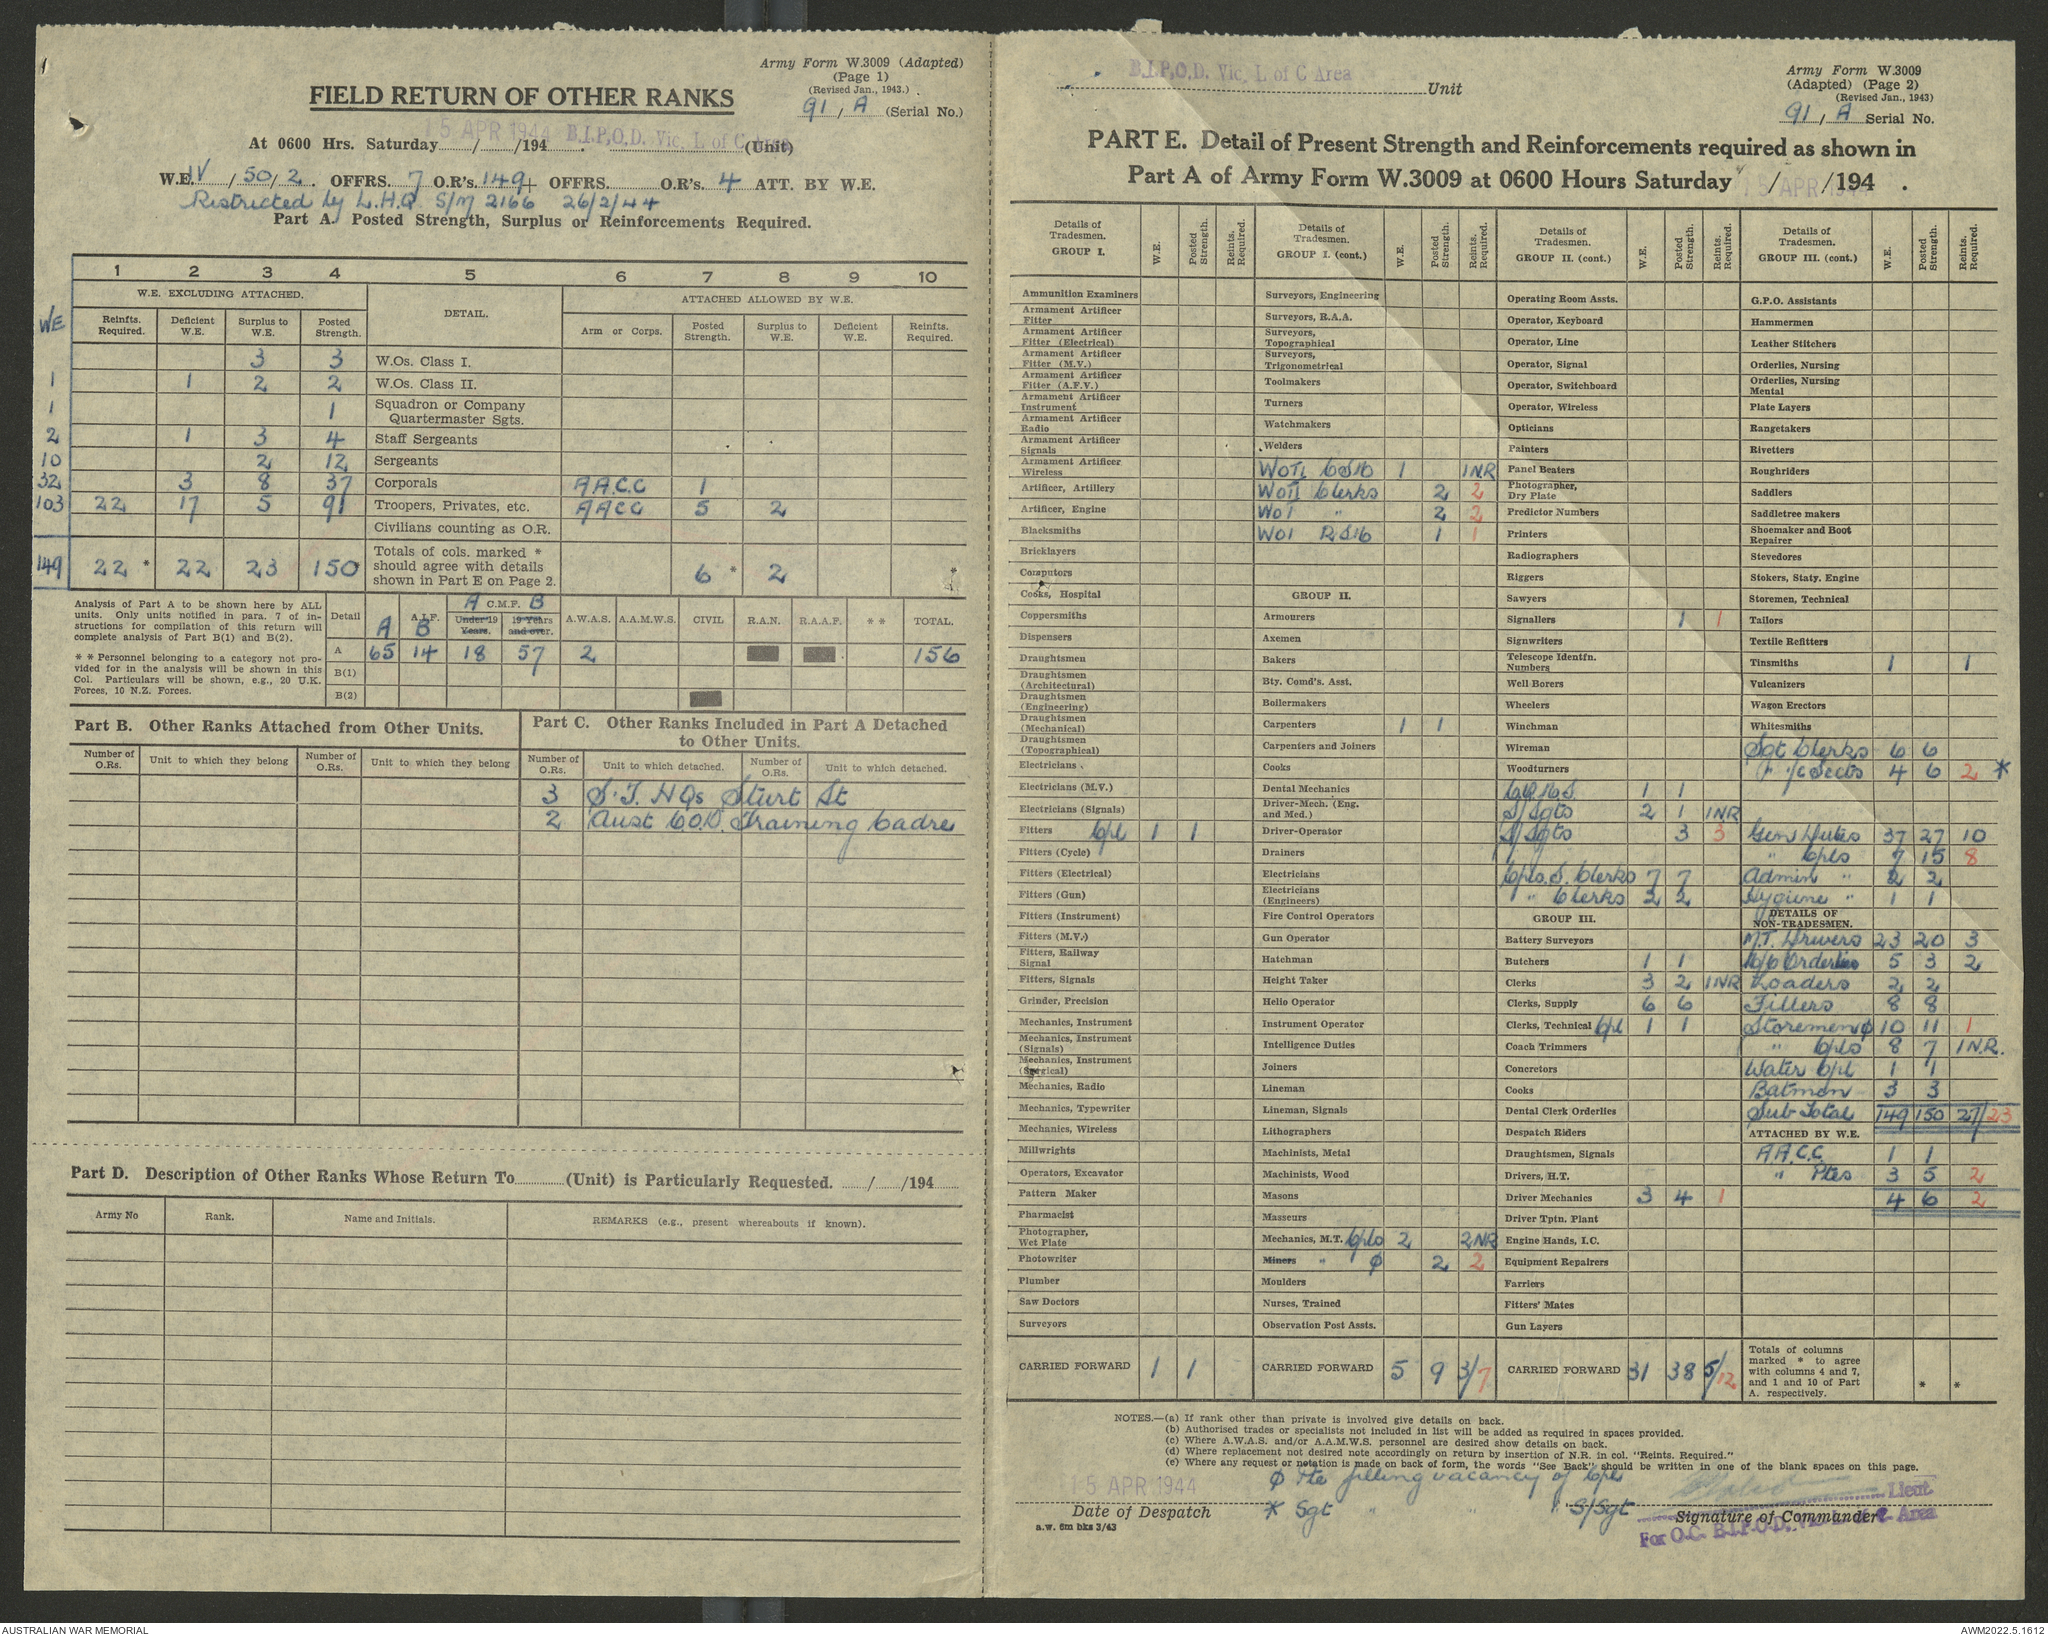 Army Form W.3009 (Adapted)
(Page 1)
(Revised Jan., 1943.)
91 / A (Serial No.)
FIELD RETURN OF OTHER RANKS
At 0600 Hrs. Saturday 15 APR 1944 /194 B.I.P.O.D. Vic. L of C Area (Unit)
W.E. IV / 50 / 2. OFFRS. 7 O.R's. 149 + OFFRS. O.R's. 4 ATT. BY W.E.
Restricted by L.H.Q. S/M 2166 26/2/44
Part A. Posted Strength, Surplus or Reinforcements Required.
1 2 3 4 5 6 7 8 9 10
W.E. EXCLUDING ATTACHED. DETAIL. ATTACHED ALLOWED BY W.E.
WE Reinfts. Required. Deficient W.E. Surplus to W.E. Posted Strength. Arm or Corps. Posted Strength. Surplus to W.E. Deficient W.E. Reinfts. Required.
3 3 W.Os. Class I.
1 1 2 2 W.Os. Class II.
1 1 Squadron or Company Quartermaster Sgts.
2 1 3 4 Staff Sergeants
10 2 12 Sergeants
32 3 8 37 Corporals A.A.C.C 1
103 22 17 5 91 Troopers, Privates, etc. AACC 5 2
Civilians counting as O.R.
149 22 * 22 23 150 * Totals of cols. marked * should agree with details shown in Part E on Page 2. 6 * 2 *
Analysis of Part A to be shown here by ALL units. Only units notified in para. 7 of instructions for compilation of this return will complete analysis of Part B(1) and B(2).
* * Personnel belonging to a category not provided for in the analysis will be shown in this Col. Particulars will be shown, e.g., 20 U.K. Forces, 10 N.Z. Forces.
Detail A.I.F. A B A C.M.F. B Under 19 Years. 19 Years and over. A.W.A.S. A.A.M.W.S. CIVIL R.A.N. R.A.A.F. * * TOTAL.
A 65 14 18 57 2 156
B(1)
B(2)
Part B. Other Ranks Attached from Other Units.
Number of O.Rs. Unit to which they belong Number of O.Rs. Unit to which they belong
Part C. Other Ranks Included in Part A Detached to Other Units.
Number of O.Rs. Unit to which detached. Number of O.Rs. Unit to which detached.
3 S.T. HQs Sturt St
2 Aust C.O.D. Training Cadre
Part D. Description of Other Ranks Whose Return To (Unit) is Particularly Requested. / /194
Army No Rank. Name and Initials. REMARKS (e.g., present whereabouts if known).
B.I.P.O.D. Vic. L of C Area Unit
Army Form W.3009
(Adapted) (Page 2)
(Revised Jan., 1943)
91 / A Serial No.
PART E. Detail of Present Strength and Reinforcements required as shown in
Part A of Army Form W.3009 at 0600 Hours Saturday 15 APR /194 .
Details of Tradesmen. GROUP I. W.E. Posted Strength. Reints. Required.
Ammunition Examiners
Armament Artificer Fitter
Armament Artificer Fitter (Electrical)
Armament Artificer Fitter (M.V.)
Armament Artificer Fitter (A.F.V.)
Armament Artificer Instrument
Armament Artificer Radio
Armament Artificer Signals
Armament Artificer Wireless
Artificer, Artillery
Artificer, Engine
Blacksmiths
Bricklayers
Computors
Cooks, Hospital
Coppersmiths
Dispensers
Draughtsmen
Draughtsmen (Architectural)
Draughtsmen (Engineering)
Draughtsmen (Mechanical)
Draughtsmen (Topographical)
Electricians
Electricians (M.V.)
Electricians (Signals)
Fitters Cpl 1 1
Fitters (Cycle)
Fitters (Electrical)
Fitters (Gun)
Fitters (Instrument)
Fitters (M.V.)
Fitters, Railway Signal
Fitters, Signals
Grinder, Precision
Mechanics, Instrument
Mechanics, Instrument (Signals)
Mechanics, Instrument (Surgical)
Mechanics, Radio
Mechanics, Typewriter
Mechanics, Wireless
Millwrights
Operators, Excavator
Pattern Maker
Pharmacist
Photographer, Wet Plate
Photowriter
Plumber
Saw Doctors
Surveyors
CARRIED FORWARD 1 1
Details of Tradesmen. GROUP I. (cont.) W.E. Posted Strength. Reints. Required.
Surveyors, Engineering
Surveyors, R.A.A.
Surveyors, Topographical
Surveyors, Trigonometrical
Toolmakers
Turners
Watchmakers
Welders
WOII 1 1NR
WOII Clerks 2 2
WO1 " 2 2
WO1 1 1
GROUP II.
Armourers
Axemen
Bakers
Bty. Comd's. Asst.
Boilermakers
Carpenters 1 1
Carpenters and Joiners
Cooks
Dental Mechanics
Driver-Mech. (Eng. and Med.)
Driver-Operator
Drainers
Electricians
Electricians (Engineers)
Fire Control Operators
Gun Operator
Hatchman
Height Taker
Helio Operator
Instrument Operator
Intelligence Duties
Joiners
Lineman
Lineman, Signals
Lithographers
Machinists, Metal
Machinists, Wood
Masons
Masseurs
Mechanics, M.T. Cpls 2 2NR
Miners " φ 2 2
Moulders
Nurses, Trained
Observation Post Assts.
CARRIED FORWARD 5 9 3/7
Details of Tradesmen. GROUP II. (cont.) W.E. Posted Strength. Reints. Required.
Operating Room Assts.
Operator, Keyboard
Operator, Line
Operator, Signal
Operator, Switchboard
Operator, Wireless
Opticians
Painters
Panel Beaters
Photographer, Dry Plate
Predictor Numbers
Printers
Radiographers
Riggers
Sawyers
Signallers 1 1
Signwriters
Telescope Identfn. Numbers
Well Borers
Wheelers
Winchman
Wireman
Woodturners
C.Q.M.S. 1 1
S/Sgts 2 1 1NR
S/Sgts 3 3
Cpls. S. Clerks 7 7
" Clerks 2 2
GROUP III.
Battery Surveyors
Butchers 1 1
Clerks 3 2 1NR
Clerks, Supply 6 6
Clerks, Technical Cpl 1 1
Coach Trimmers
Concretors
Cooks
Dental Clerk Orderlies
Despatch Riders
Draughtsmen, Signals
Drivers, H.T.
Driver Mechanics 3 4 1
Driver Tptn. Plant
Engine Hands, I.C.
Equipment Repairers
Farriers
Fitters' Mates
Gun Layers
CARRIED FORWARD 31 38 5/12
Details of Tradesmen. GROUP III. (cont.) W.E. Posted Strength. Reints. Required.
G.P.O. Assistants
Hammermen
Leather Stitchers
Orderlies, Nursing
Orderlies, Nursing Mental
Plate Layers
Rangetakers
Rivetters
Roughriders
Saddlers
Saddletree makers
Shoemaker and Boot Repairer
Stevedores
Stokers, Staty. Engine
Storemen, Technical
Tailors
Textile Refitters
Tinsmiths 1 1
Vulcanizers
Wagon Erectors
Whitesmiths
Sgt Clerks 6 6
" i/c Sects 4 6 2 *
Gen Duties 37 27 10
" Cpls 7 15 8
Admin " 2 2
Hygiene " 1 1
DETAILS OF NON-TRADESMEN.
M.T. Drivers 23 20 3
Orderlies 5 3 2
Loaders 2 2
Fillers 8 8
Storemen φ 10 11 1
" Cpls 8 7 1N.R.
Water Cpl 1 1
Batmen 3 3
Sub Total 149 150 27/23
ATTACHED BY W.E.
A.A.C.C. 1 1
" Ptes 3 5 2
4 6 2
Totals of columns marked * to agree with columns 4 and 7, and 1 and 10 of Part A. respectively. * *
NOTES.—(a) If rank other than private is involved give details on back.
(b) Authorised trades or specialists not included in list will be added as required in spaces provided.
(c) Where A.W.A.S. and/or A.A.M.W.S. personnel are desired show details on back.
(d) Where replacement not desired note accordingly on return by insertion of N.R. in col. "Reints. Required."
(e) Where any request or notation is made on back of form, the words "See Back" should be written in one of the blank spaces on this page.
φ Pte filling vacancy of Cpls
* Sgt " " " S/Sgt
15 APR 1944
Date of Despatch
a.w. 6m bks 3/43
Lieut
Signature of Commander
For O.C. B.I.P.O.D. Vic. L of C. Area
AUSTRALIAN WAR MEMORIAL
AWM2022.5.1612